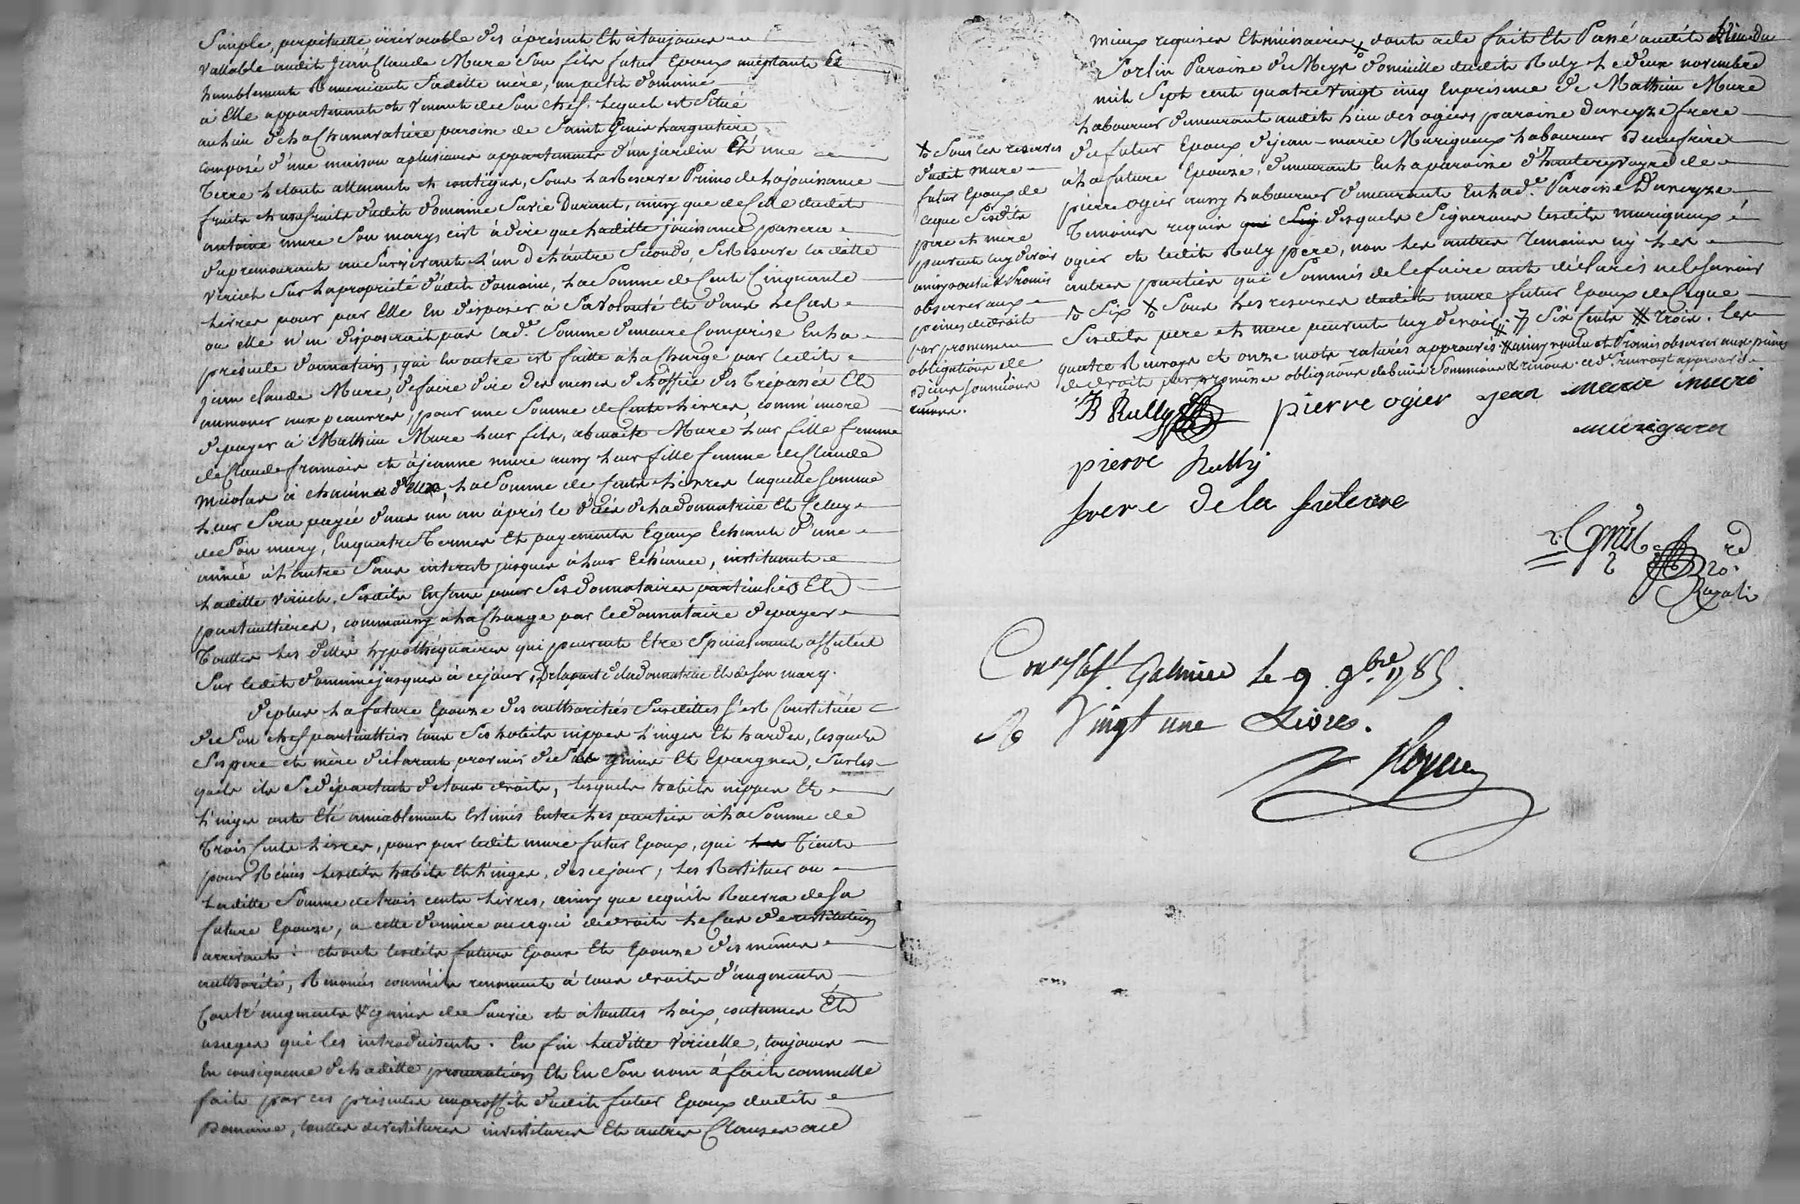 Simple, perpetuelle irrevocable des apresent Et atoujours
vallable audit Jean Claude Mure Son fils futur Epoux aceptant Et
humblement Remerciant Saditte mère, un petit domaine
à Elle appartenant et venant de Son chef, lequel est Situé
au lieu de la Chanavatière paroisse de Saint Genis Largentiere
composé d'une maison a plusieurs appartements d'un jardin Et d'une
Terre le tout attenant et contigue, Sous la Reserve Primo de la jouissance
fruits et usufruits dudit domaine Sa vie Durant, ainsy que de Celle dudit
antoine mure Son mary c'est adire que laditte jouissance passera
du premourant au Survivant l'un de l'autre Secondo, Se Reserve laditte
Veriict Sur la proprieté dudit domaine, la Somme de Cent Cinquante
livres pour par Elle En disposer à Sa volonté Et dans le Cas
ou elle n'en disposerait pas lad.e Somme demeure Comprise En la
presente donnation, qui En outre est faitte à la Charge par ledit
jean claude Mure, de faire dire des messes de l'office des Trépassés Et
aumoner aux pauvres, pour une Somme de Cent livres, comm'encore
de payer à Mathieu Mure leur fils, a Benoite Mure leur fille femme
de Claude françois et à jeanne mure aussy leur fille femme de Claude
Nicolas à chacune d'elles, la Somme de Cents livres laquelle Somme
leur Sera payée dans un an après le décès de la donnatrice Et Celuy
de Son mary, En quatre Termes Et payements Egaux Echeant d'une
année à l'autre Sans interest jusques à leur Echeance, instituant
laditte Veriict. Sesdits Enfans pour Ses donnataires particuliers Et
particullieres, comm'aussy à la Charge par le donnataire de payer
Touttes les dettes hypothéquaires qui peuvent Etre Specialement affectées
Sur ledit domaine jusques à ce jour, De la part de la donnatrice Et de son mary.
De plus la future Epouze des authorités Susdittes s'est Constituée
de Son chef particullier tous Ses habits nippes linges Et hardes, lesquels
Ses pere et mère déclarent provenir de Ses gains Et Epargnes, Sur les
quels ils Se départent de tous droits, lesquels habits nippes Et
linges ont Eté amiablement Estimés Entre les parties à la Somme de
Trois Cents livres, pour par ledit mure futur Epoux, qui Tient
pour Réçus lesdits habits Et linges, des ce jour, les Restituer ou
laditte Somme de trois cents livres, ainsy que ce qu'il Recevra de Sa
future Epouze, a cette derniere ou a qui de droit le Cas de restitution
arrivant. et ont lesdits futurs Epoux Et Epouze des mêmes
authorités, Renoncés comm'ils renoncent à tous droits d'augments
Contr'augments & gains de Survie et à touttes loix, coutumes Et
usages qui les introduisent. En fin laditte Veriielle, toujours
En consequence de laditte procuration Et En Son nom à fait comm'elle
fait par ces presentes au proffit dudit futur Epoux dudit
Domaine, touttes devestitures investitures Et autres Clauses au
✕ Sous les reserves
dudit mure
futur Epoux de
ceque Sesdits
pere et mere
peuvent luy devoir
ainsy voulu & Promis
observer aux
peines de droit
par promesse
obligations de
Biens soumission
mieux requises Et necessaires, dont acte fait Et Passé audit Lieu Du
Sorlin Paroisse de Meys domicille dudit Ruly le deux novembre
mil Sept cent quatre vingt cinq En presence de Mathieu Mure
laboureur demeurant audit lieu des ogiers paroisse d'aveyze frere
du futur Epoux de jean-marie Murigneux laboureur Beaufrère
à la future Epouze, demeurant En la paroisse d'hauterivoire de
pierre ogier aussy laboureur demeurant En lad.e Paroisse D'aveyze
Temoins requis desquels Signeront lesdits murigneux
ogier et ledit Ruly pere, non les autres Temoins ny les
autres parties qui Sommés de le faire ont déclarés ne le Sçavoir
Sous les reserves dudit mure futur Epoux de Ceque
Sesdits pere et mere peuvent luy devoir. Six Cents Trois. les
quatre Renvoys et onze mots raturés approuvés ainsy voulu et Promis observer aux peines
de droit par promesse obligations de biens soumission & renon.on ce d.t renvoy approuvé
B Rully pierre ogier jean marie muri
murigneu
pierre Rully
Con.lé à S.t Galmier le 9 9bre 1785.
R Vingt une Livres.